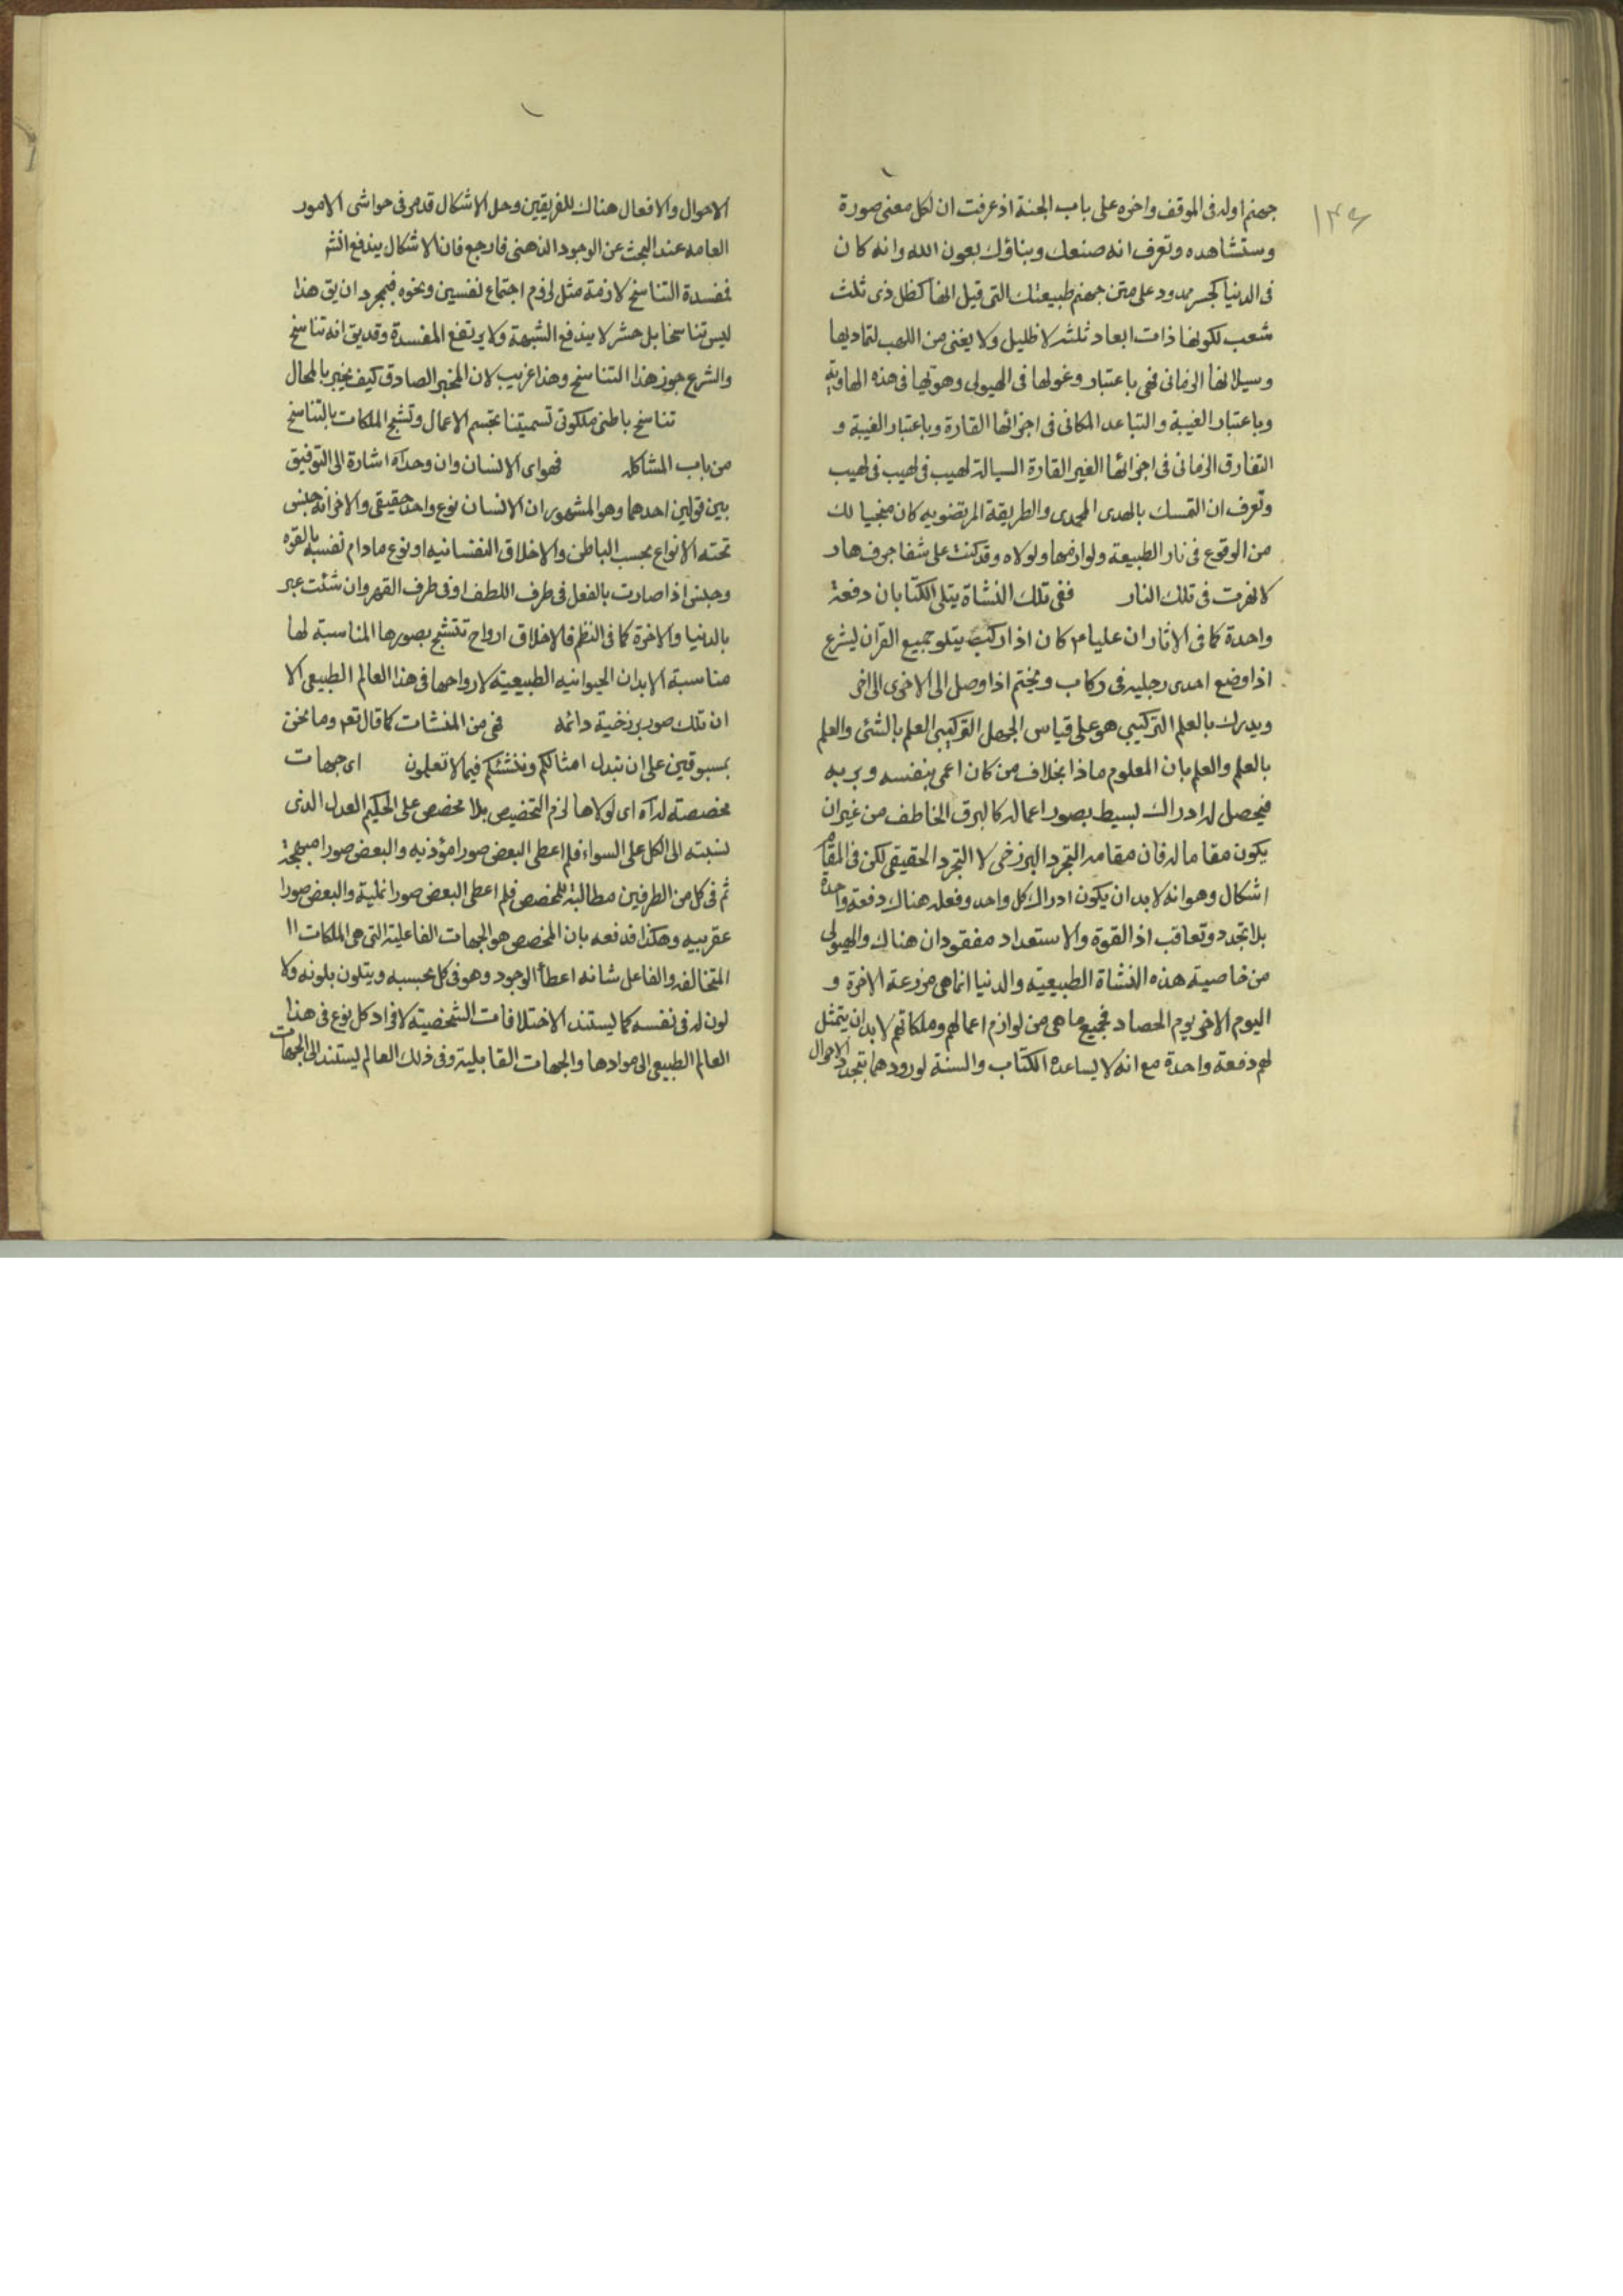 ١٣٤
جهنم اوله فى الموقف واخره على باب الجنة اذ عرفت ان لكل معنى صورة
وستشاهده وتعرف انه صنعك وبناؤك بعون الله وانه كان
فى الدنيا كجسر ممدود على متن جهنم طبيعتك التى قيل انها كظل ذى ثلث
شعب لكونها ذات ابعاد ثلثه لا ظليل ولا يغنى من اللهب لتماديها
وسيلانها الزمانى فهى باعتبار وغولها فى الهيولى وهويها فى هذه الهاوية
وباعتبار الغيبة والتباعد المكانى فى اجزائها القارة وباعتبار الغيبة و
التفارق الزمانى فى اجزائها الغير القارة السيالة لهيب فى لهيب فى لهيب
وتعرف ان التمسك بالهدى المحمدى والطريقة المرتضويه كان منجيا لك
من الوقوع فى نار الطبيعة ولوازمها ولولاه وقد كنت على شفا جرف هار
لانهرت فى تلك النار ففى تلك النشاة يتلى الكتابان دفعة
واحدة كما فى الاثار ان عليا ع كان اذا ركب يتلو جميع القران يشرع
اذا وضع احدى رجليه فى ركاب ويختم اذا وصل الى الاخرى الى اخر
ويدرك بالعلم التركيبى هو على قياس الجهل التركيبى العلم بالشئ والعلم
بالعلم والعلم بان المعلوم ماذا بخلاف من كان اعمى بنفسه وبربه
فيحصل له ادراك بسيط بصور اعماله كالبرق الخاطف من غير ان
يكون مقاما له فان مقامه التجرد البرزخى لا التجرد الحقيقى لكن فى المقام
اشكال وهو انه لابد ان يكون ادراك كل واحد وفعله هناك دفعة واحدة
بلا تجدد وتعاقب اذ القوة والاستعداد مفقودان هناك والهيولى
من خاصية هذه النشاة الطبيعيه والدنيا انما هى مزرعة الاخرة و
اليوم الاخر يوم الحصاد فجميع ما هى من لوازم اعمالهم وملكاتهم لابد ان يتمثل
لهم دفعة واحدة مع انه لا يساعده الكتاب والسنة لورودهما بتجدد الاحوال
الاحوال والافعال هناك للفريقين وحل الاشكال قد مر فى حواشى الامور
العامه عند البحث عن الوجود الذهنى فارجع فان الاشكال يندفع انشه
فمفسدة التناسخ لازمة مثل لزوم اجتماع نفسين ونحوه فبمجرد ان يق هذا
ليس تناسخا بل حشر لا يندفع الشبهة ولا يرتفع المفسدة وقد يق انه تناسخ
والشرع جوز هذا التناسخ وهذا غريب لان المخبر الصادق كيف يخبر بالمحال
تناسخ باطنى ملكوتى تسميتنا تجسم الاعمال وتشبح الملكات بالتناسخ
من باب المشاكله فهو اى الانسان وان وحدآه اشارة الى التوفيق
بين قولين احدهما وهو المشهور ان الانسان نوع واحد حقيقى والاخر انه جنس
تحته الانواع بحسب الباطن والاخلاق النفسانيه او نوع مادام نفسه بالقوه
وجنس اذا صارت بالفعل فى طرف اللطف او فى طرف القهر وان شئت عبر
بالدنيا والاخرة كما فى النظم فالاخلاق ارواح تتشبح بصورها المناسبة لها
مناسبة الابدان الحيوانيه الطبيعيته لارواحها فى هذا العالم الطبيعى الا
ان تلك صور برزخية دائمه فهى من المنشات كما قال تعه وما نحن
بمسبوقين على ان نبدل امثالكم وننشئكم فيما لا تعلمون اى جهات
مخصصته له آه اى لولاها لزم التخصيص بلا مخصص على الحكيم العدل الذى
نسبته الى الكل على السواء فلم اعطى البعض صورا مؤذيه والبعض صورا مبهجة
ثم فى كل من الطرفين مطالبة للمخصص فلم اعطى البعض صورا نملية والبعض صورا
عقربيه وهكذا فدفعه بان المخصص هو الجهات الفاعلية التى هى الملكات ١١
المتخالفه والفاعل شانه اعطأ الوجود وهو فى كل بحسبه ويتلون بلونه ولا
لون له فى نفسه كما يستند الاختلافات الشخصيته لافراد كل نوع فى هذا
العالم الطبيعى الى موادها والجهات القابلية وفى ذلك العالم يستند الى الجهات